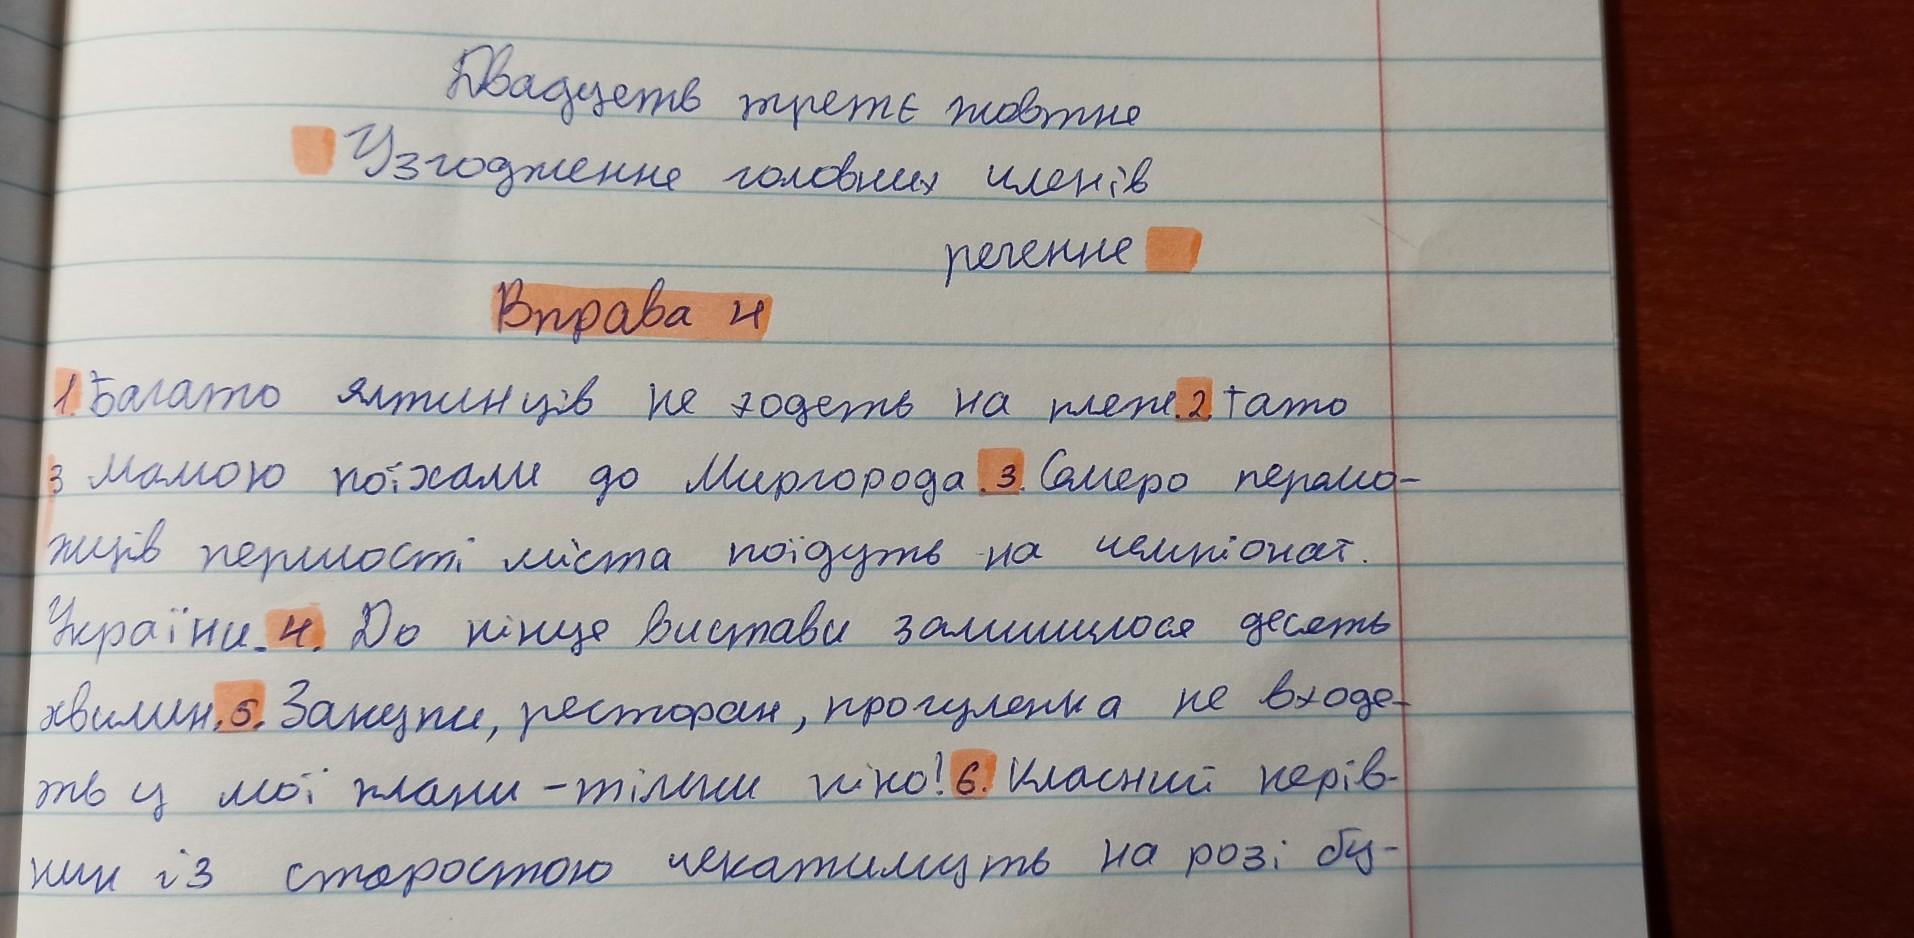 Двадцять третє жовтня
Узгодження головних членів
речення
Вправа 4
1. Багато ялтинців не ходять на пляж. 2. Тато
з мамою поїхали до Миргорода. 3. Семеро перемо-
жців першості міста поїдуть на чемпіонат.
України. 4. До кінця вистави залишилося десять
хвилин. 5. Закупи, ресторан, прогулянка не входя-
ть у мої плани - тільки кіно! 6. Класний керів-
ник із старостою чекатимуть на розі бу-